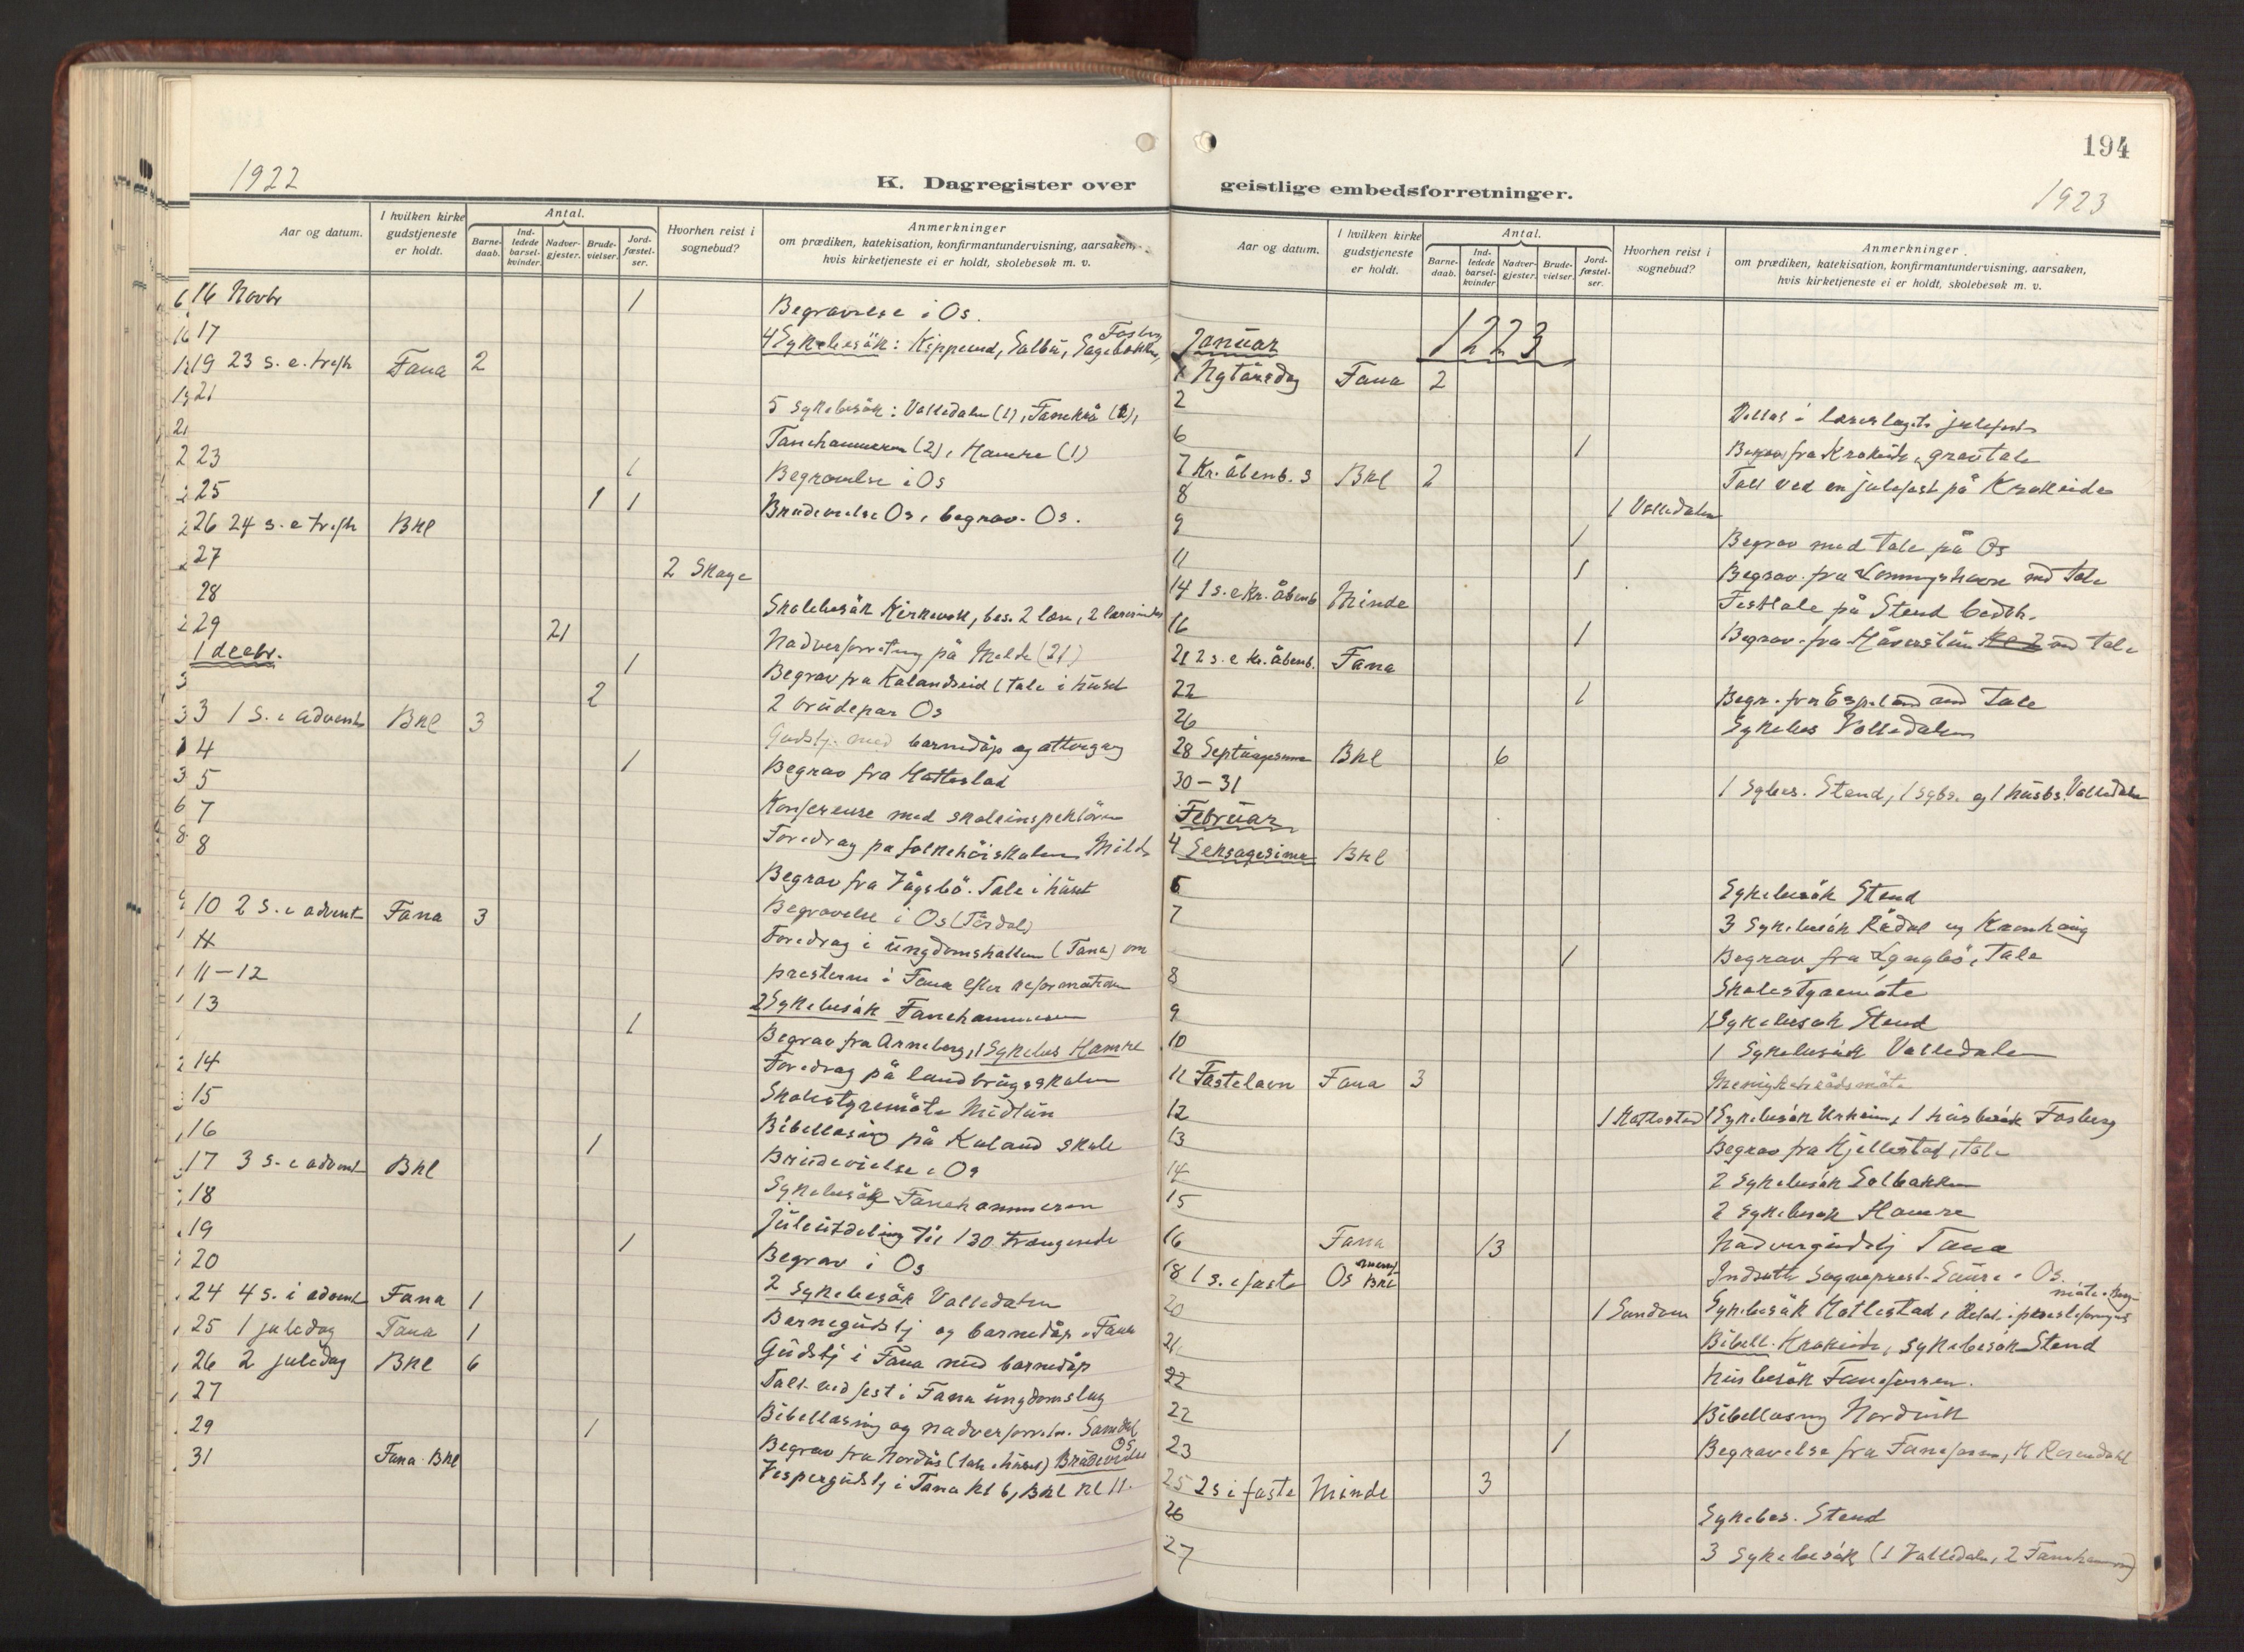 1922
K. Dagregister over
Aar og datum. I hvilken kirke gudstjeneste er holdt. Antal. Barnedaab. Indledede barselkvinder. Nadvergjester. Brudevielser. Jordfæstelser. Hvorhen reist i sognebud? Anmerkninger om prædiken, katekisation, konfirmantundervisning, aarsaken, hvis kirketjeneste ei er holdt, skolebesøk m. v.
16 Novbr 1 Begravelse i Os.
17 4 Sykebesök:
19 23 s. e. trefh Fana 2
21 5 sykebesök: Valledalen (1),
Fanehammeren (2), Hamre (1)
23 1 Begravelse i Os
25 1 1 Brudevielse Os, begrav. Os.
26 24 s. e trefh BKl
27 2 Skage
28 Skolebesök Kirkevoll, bes. 2 lær, 2 lærerinder
29 21 Nadverforretning på Milde (21)
1 decbr. 1 Begrav fra Kalandseid (tale i huset
2 2 brudepar Os
3 1 s. i advent BKl 3 Gudstj. med barnedåp og altergang
4 1 Begrav fra Hatlestad
5 Konferense med skoleinspektören
7 Foredrag på folkehöiskolen Milde
8 Begrav fra Vågsbö. Tale i huset
10 2 S. i advent Fana 3 Begravelse i Os
Foredrag i ungdomshallen (Fana) om
11-12 presterne i Fana efter reformationen
13 2 Sykebesök Fanehammeren
1 Begrav fra Anneberg, 1 Sykebes Hamre
14 Foredrag på landbrugsskolen
15 Skolestyremöte Midtun
16 Bibellæsning på Kaland skule
17 3 S. i advent BKl 1 Brudevielse i Os
18 Sykebesök Fanehammeren
19 Juleutdeling til 130 trængende
20 1 Begrav i Os
24 4 s. i advent Fana 1 2 sykebesök Valledalen
25 1 juledag Fana 1 Barnegudstj og barnedåp i Fana
26 2 juledag BKl 6 Gudstj i Fana med barnedåp
27 Tale ved fest i Fana ungdomslag
29 1 Bibellæsning og nadverforretn.
31 Fana BKl Begrav fra Nordås (tale i huset) Brudevielse Os
Vespergudstj i Fana kl 6, BKl kl 11.
194
1923
geistlige embedsforretninger.
Aar og datum. I hvilken kirke gudstjeneste er holdt. Antal. Barnedaab. Indledede barselkvinder. Nadvergjester. Brudevielser. Jordfæstelser. Hvorhen reist i sognebud? Anmerkninger om prædiken, katekisation, konfirmantundervisning, aarsaken, hvis kirketjeneste ei er holdt, skolebesøk m. v.
Januar 1223
1 Nytårsdag Fana 2
2 Deltat i lærerlagets julefest
6 1 Begrav fra Krokeide, gravtale
7 Kr. åbenb. s BKl 2 Tale ved en julefest på Krokeide
8 1 Valledalen
9 1 Begrav med tale på Os
11 1 Begrav. fra md tale
14 1 s. e Kr. åbenb Minde Festtale på Stend
16 1 Begrav. fra md tale
21 2 s. e kr. åbenb. Fana
22 1 Begr. fra Espeland md tale
26 Sykebes Valledalen
28 Septuagesima BKl 6
30-31 1 Sykes. Stend, 1 sgbs. og 1 husbs. Valledalen
Februar
4 Seksagesima BKl
6 Sykebesök Stend
7 3 Sykebesök Rådal og Kronhaug
1 Begrav fra tale
8 Skolestyremöte
9 1 Sykebesök Stend
10 1 Sykebesök Valledalen
11 Fastelavn Fana 3 Menighetsrådsmöte
12 1 Hatlestad 1 Sykebesök 1 husbesök Fosberg
13 Begrav fra Kjellestad, tale
14 2 Sykebesök Solbakken
15 2 Sykebesök Hamre
16 Fana 13 Nadvergudstj Fana
18 1 s. i faste Os BKl Indsatte sogneprest i Os.
20 1 Sandven Sykebesök Hatlestad, Deltat i presteforenings möte i Berg-
21 Bibell. Krokeide, sykebesök Stend
22 Husbesök Faneforsen.
22 Bibellæsning Nordvik
23 1 Begravelse fra Faneforsen,
25 2 s i faste Minde 3
26 Sykebes. Stend
27 3 sykebesök (1 Valledalen, 2 Fanehammeren)